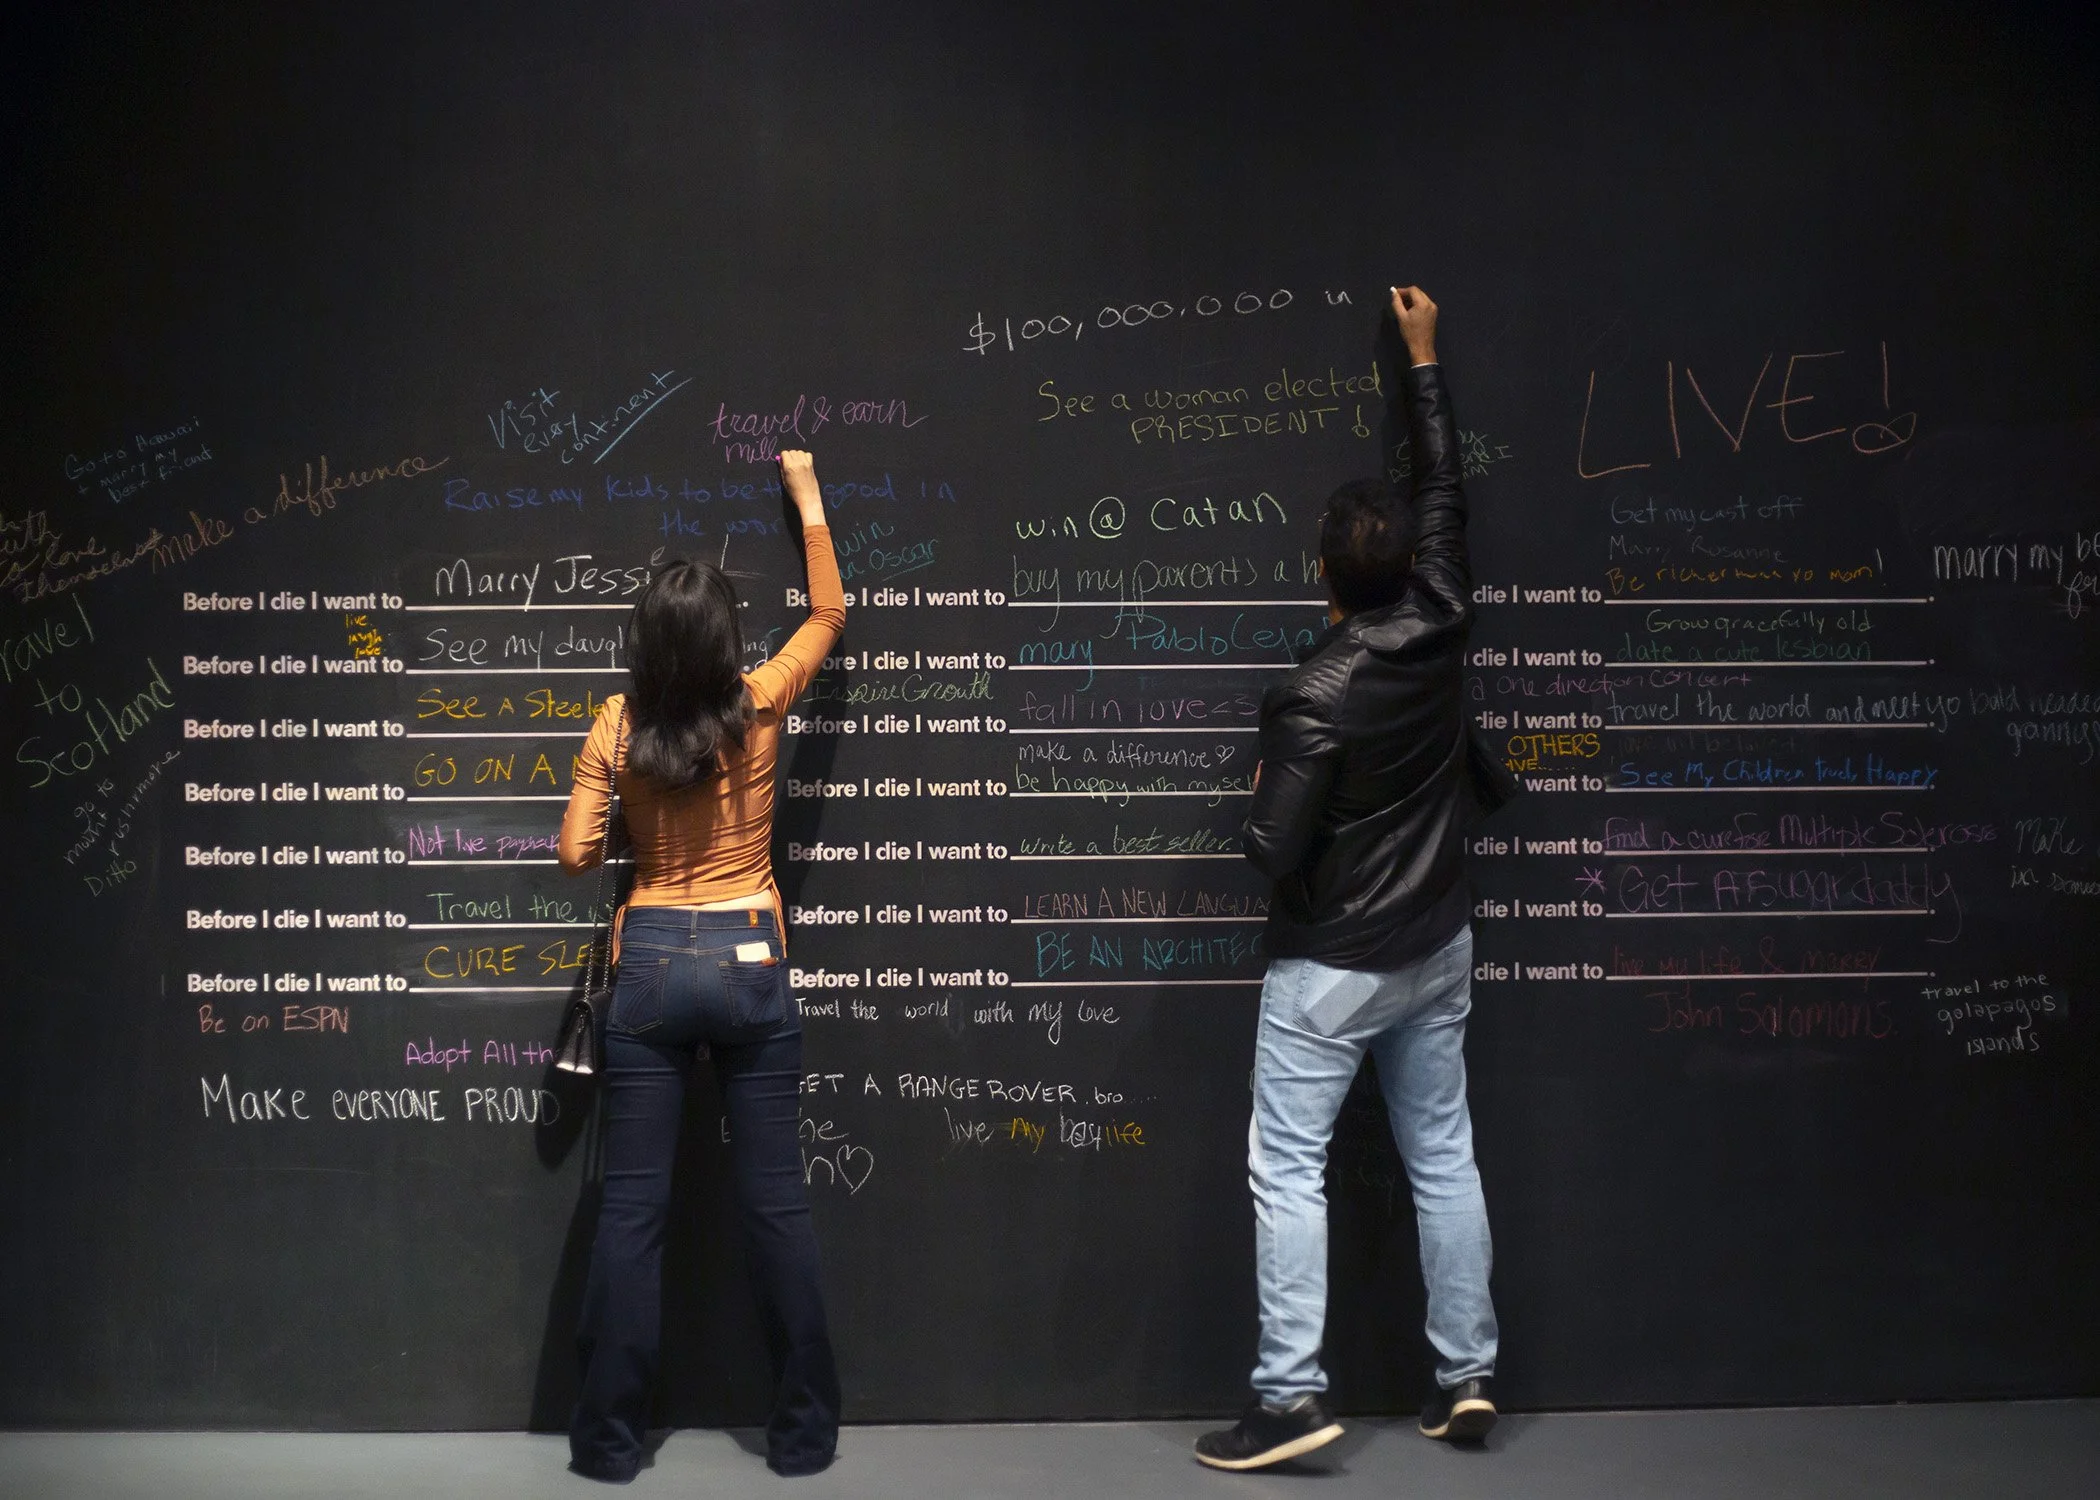 $100,000,000 in
LIVE!
See a woman elected
PRESIDENT!
Visit
every
continent
travel & earn
mill
Go to Hawaii
+ marry my
best friend
make a difference
love
themselves
Raise my kids to be good in
the
win
an Oscar
win @ Catan
Get my cast off
Marry Rosanne
Be richer than yo mom!
marry my
Before I die I want to Marry Jessie
Before I die I want to buy my parents a
die I want to
live
laugh
love
Grow gracefully old
Before I die I want to See my
I die I want to mary Pablo
die I want to date a cute lesbian
Travel
to
Scotland
Inspire Growth
a one direction concert
Before I die I want to See A
Before I die I want to fall in love <3
die I want to travel the world and meet yo bald headed
granny
make a difference ♡
OTHERS
Before I die I want to GO ON A
Before I die I want to be happy with
want to See My Children Truly Happy
go to
mount
rushmore
Ditto
Before I die I want to Not live
Before I die I want to write a best seller.
die I want to find a cure for Multiple Sclerosis
Make
in
Before I die I want to Travel the
Before I die I want to LEARN A NEW
die I want to Get A sugar daddy
Before I die I want to CURE
Before I die I want to BE AN
die I want to live my life & marry
John Salomons
Be on ESPN
Travel the world with my love
travel to the
galapagos
islands
Adopt All
Make EVERYONE PROUD
A RANGE ROVER. bro.....
live my best life